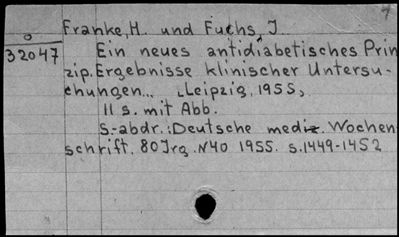 Franke, H. und Fuchs, J.
o
32047 Ein neues antidiabetisches Prin
zip. Ergebnisse klinischer Untersu-
chungen... Leipzig, 1955,
11 s. mit Abb.
S.-abdr.: Deutsche mediz. Wochen
schrift. 80 Jrg. N40 1955. s. 1449-1452